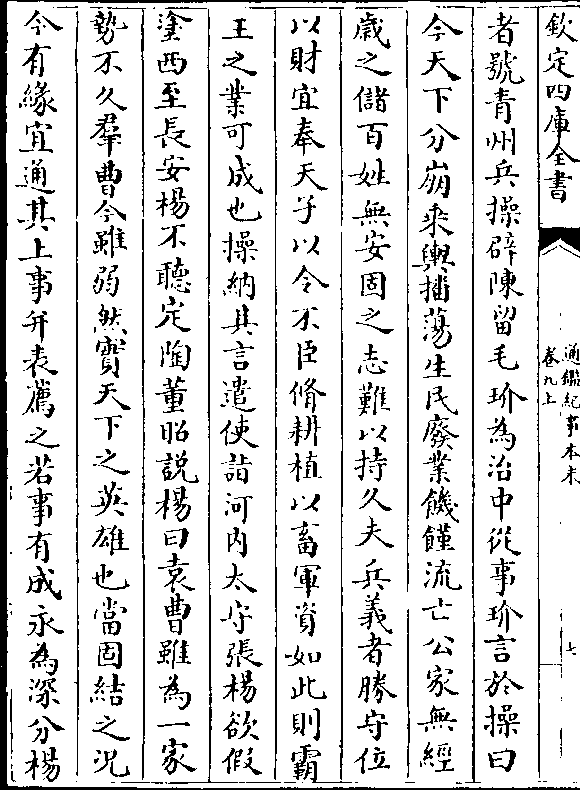 欽定四庫全書
通鑑紀事本末
卷九上
七
者號青州兵操辟陳留毛玠為治中從事玠言於操曰
今天下分崩乘輿播蕩生民廢業饑饉流亡公家無經
歲之儲百姓無安固之志難以持久夫兵義者勝守位
以財宜奉天子以令不臣脩耕植以畜軍資如此則霸
王之業可成也操納其言遣使詣河内太守張楊欲假
塗西至長安楊不聽定陶董昭説楊曰袁曹雖為一家
勢不久羣曹今雖弱然實天下之英雄也當固結之況
今有緣宜通其上事并表薦之若事有成永為深分楊